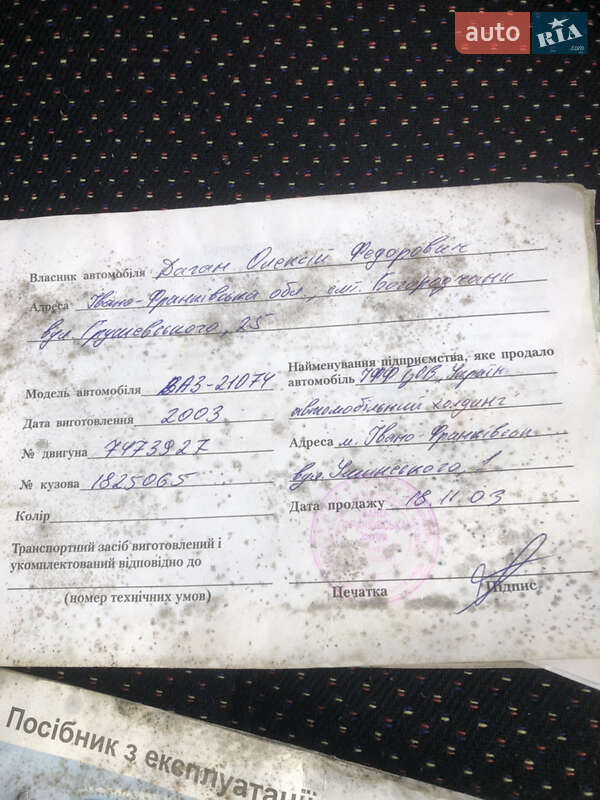 auto RIA.com
Власник автомобіля Даган Олексій Федорович
Адреса Івано-Франківська обл., смт. Богородчани
вул Грушевського, 25
Модель автомобіля ВАЗ-21074
Дата виготовлення 2003
№ двигуна 7473927
№ кузова 1825065
Колір
Транспортний засіб виготовлений і
укомплектований відповідно до
(номер технічних умов)
Найменування підприємства, яке продало
автомобіль ІФФ
автомобільний холдинг"
Адреса м. Івано-Франківськ
1
Дата продажу 18.11.03
Печатка Підпис
Посібник з експлуатації